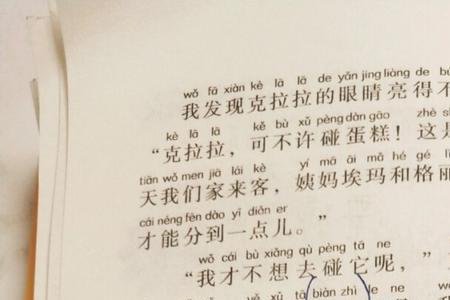 wǒ fā xiàn kè lā lā de yǎn jing liàng de
我发现克拉拉的眼睛亮得不
kè lā lā kě bù xǔ pèng dàn gāo zhè
“克拉拉，可不许碰蛋糕！这是
tiān wǒ men jiā lái kè yí mā āi mǎ hé gé
天我们家来客，姨妈埃玛和格丽
cái néng fēn dào yī diǎn er
才能分到一点儿。”
wǒ cái bù xiǎng qù pèng tā ne
“我才不想去碰它呢，”
xǔ tā biàn zhì le ne